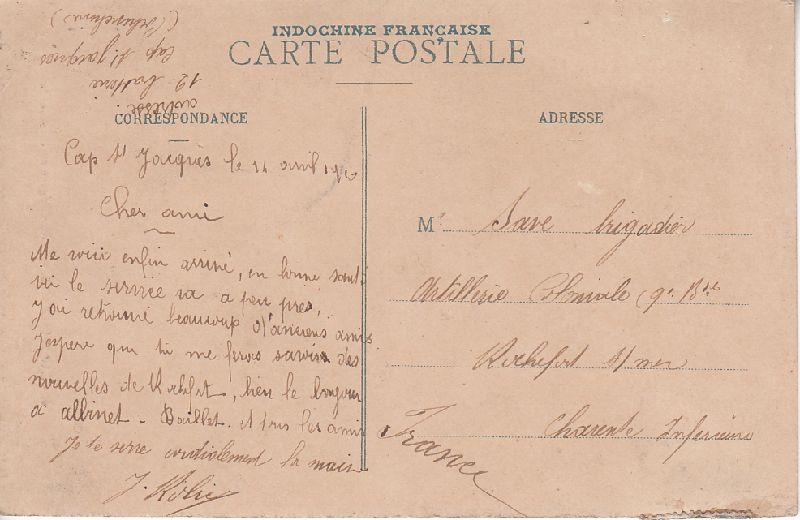 INDOCHINE FRANÇAISE
CARTE POSTALE
CORRESPONDANCE
ADRESSE
adresse
12 batterie
Cap St Jacques
(Cochinchine)
Cap St Jacques le 14 avril
Cher ami
Me voici enfin arrivé, en bonne santé
ici le service va a peu près,
J'ai retrouvé beaucoup d'anciens amis
J'espère que tu me feras savoir des
nouvelles de Rochefort, bien le bonjour
à Albinet - Baillet. et tous les amis
Je te serre cordialement la main
J.
Mr Save brigadier
Artillerie Coloniale 9e Bie
Rochefort s/mer
Charente Inferieure
France